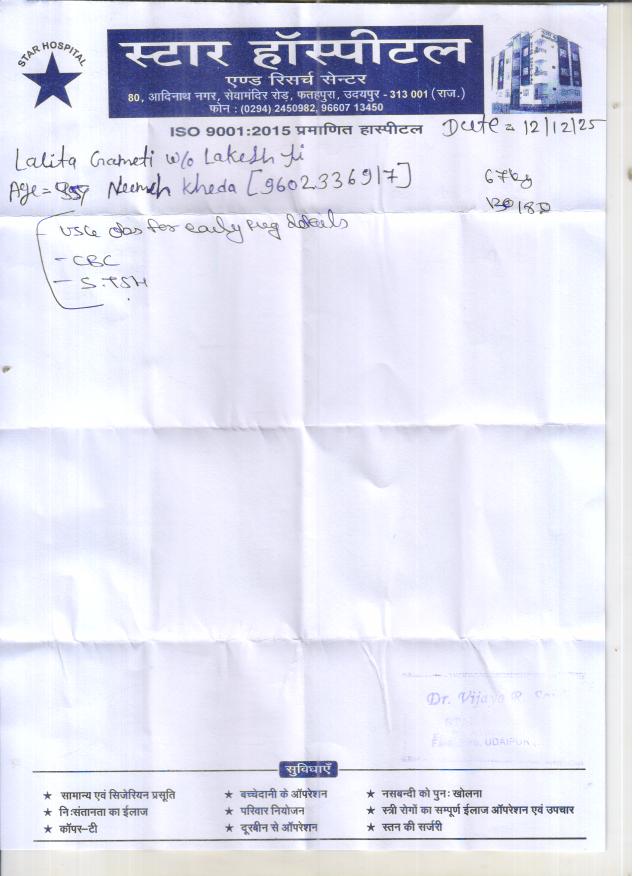 STAR HOSPITAL
स्टार हॉस्पीटल
एण्ड रिसर्च सेन्टर
80, आदिनाथ नगर, सेवामंदिर रोड, फतहपुरा, उदयपुर - 313 001 (राज.)
फोन : (0294) 2450982, 96607 13450
ISO 9001:2015 प्रमाणित हास्पीटल
Date = 12/12/25
Lalita Gameti w/o Lakesh Ji
Age = Neemach Kheda [9602336917]
67kg
- USG obs for early preg details
- CBC
- S.TSH
Dr. Vijaya R.
UDAIPUR
सुविधाएँ
★ सामान्य एवं सिजेरियन प्रसूति ★ बच्चेदानी के ऑपरेशन ★ नसबन्दी को पुनः खोलना
★ निःसंतानता का ईलाज ★ परिवार नियोजन ★ स्त्री रोगों का सम्पूर्ण ईलाज ऑपरेशन एवं उपचार
★ कॉपर-टी ★ दूरबीन से ऑपरेशन ★ स्तन की सर्जरी